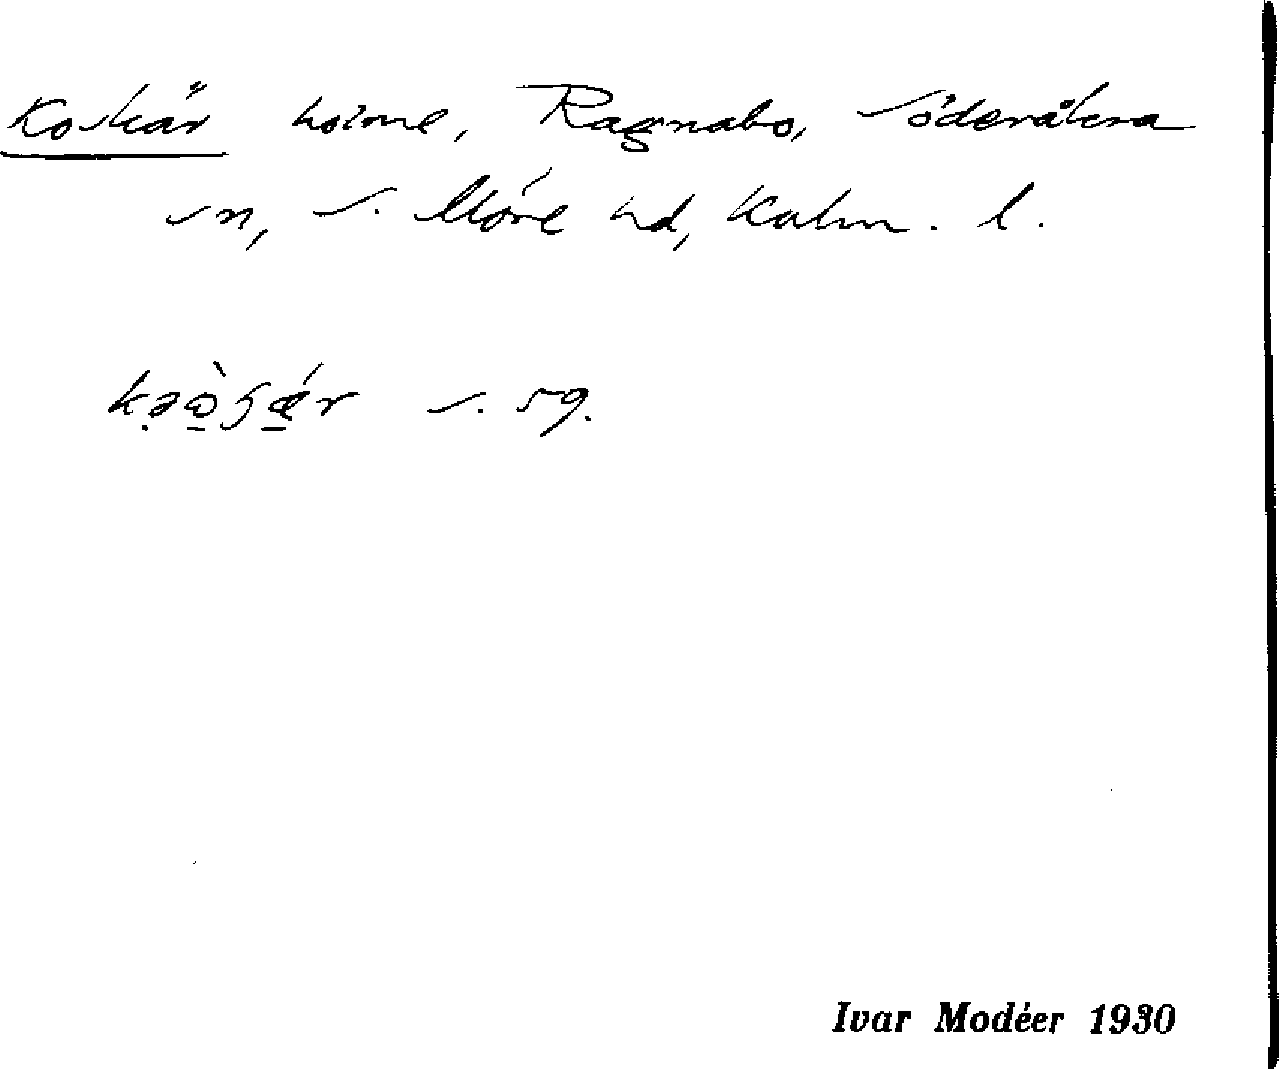 Koskär holme, Ragnabo, Söderåkra
sn, S. Möre hd, Kalm. l.
s. 59.
Ivar Modéer 1930